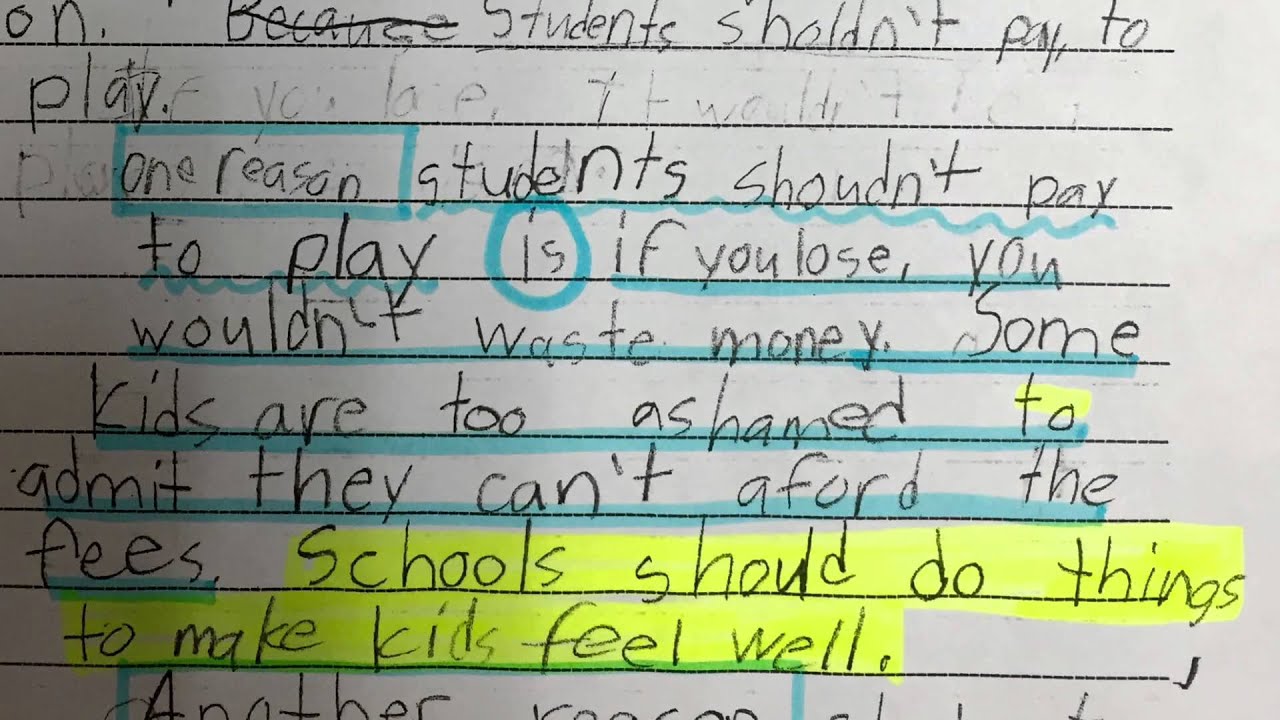 on. Because Students sholdn't pay to
play.
one reason students shoudn't pay
to play is if you lose, you
wouldn't waste money. Some
kids are too ashamed to
admit they can't aford the
fees. Schools should do things
to make kids feel well.
Another reason